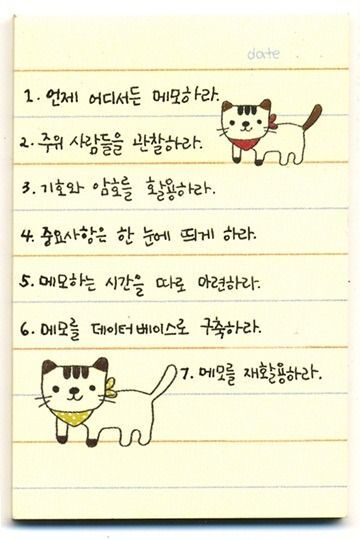 date
1. 언제 어디서든 메모하라.
2. 주위 사람들을 관찰하라.
3. 기호와 암호를 활용하라.
4. 중요사항은 한 눈에 띄게 하라.
5. 메모하는 시간을 따로 마련하라.
6. 메모를 데이터베이스로 구축하라.
7. 메모를 재활용하라.